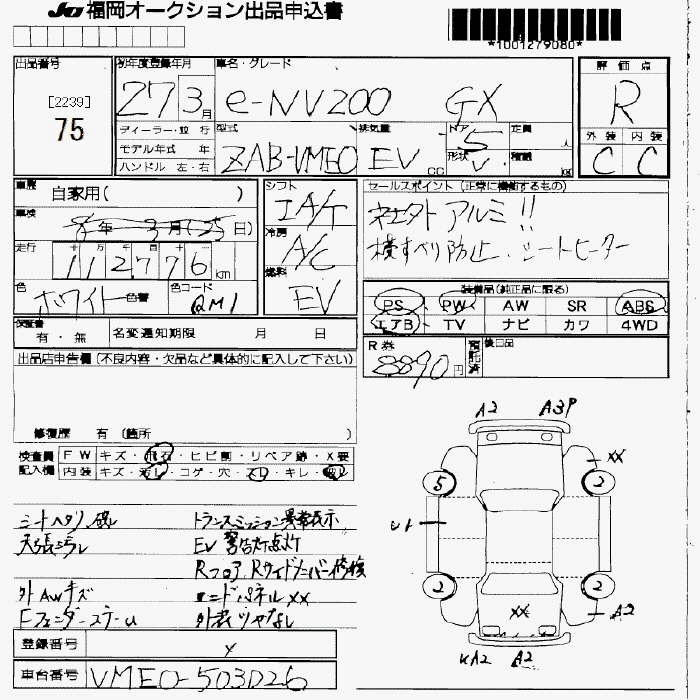 JU福岡オークション出品申込書
*1001279080*
出品番号
[2239]
75
初年度登録年月
27 3月
車名・グレード
e-NV200 GX
評価点
R
外装 内装
C C
ディーラー・並行
モデル年式 年
ハンドル 左・右
型式
ZAB-VME0
排気量
EV CC
ドア
5
形状
V
定員
人
積載
車歴
自家用( )
車検
年 3月(25日)
走行
112776km
色
ホワイト
色替
色コード
QM1
シフト
IA/T
冷房
A/C
燃料
EV
セールスポイント (正常に機動するもの)
社外アルミ!!
横すべり防止、シートヒーター
装備品(純正品に限る)
PS PW AW SR ABS
エアB TV ナビ カワ 4WD
保証書
有・無
名変通知期限 月 日
R券
8890円
預託済
後日品
出品店申告欄(不良内容・欠品など具体的に記入して下さい)
修復歴 有 (箇所 )
検査員
記入欄
FW キズ・飛石・ヒビ割・リペア跡・X要
内装 キズ・汚れ・コゲ・穴・スレ・キレ・破レ
シートヘタリ、破レ
トランスミッション異常表示
天張汚レ
EV警告灯点灯
Rフロア、Rサイドメンバー修後
外AWキズ
エンドパネルXX
Fフェンダーステーu
外装ツヤなし
登録番号
車台番号 VME0-503026
A2 A3P
XX
5 2
2 2
XX
A2
A2